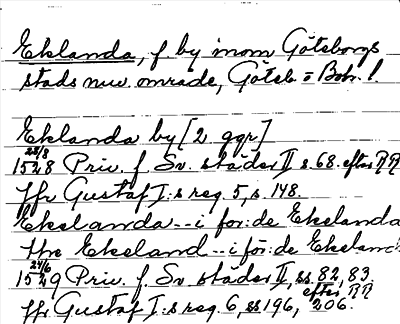 Eklanda, f. by inom Göteborgs
stads nuv. område, Göteb. o Boh. l.
Eklanda by [2 ggr]
28/8
1528 Priv. f. Sv. städer II s. 68. efter RR
jfr Gustaf I:s reg. 5, s. 148.
Ekelanda--i for:de Ekelanda
thre Ekeland--i för:de Ekeland
24/6
1529 Priv. f. Sv städer II, ss. 82, 83.
efter RR
jfr Gustaf I:s reg. 6 ss 196, 206.